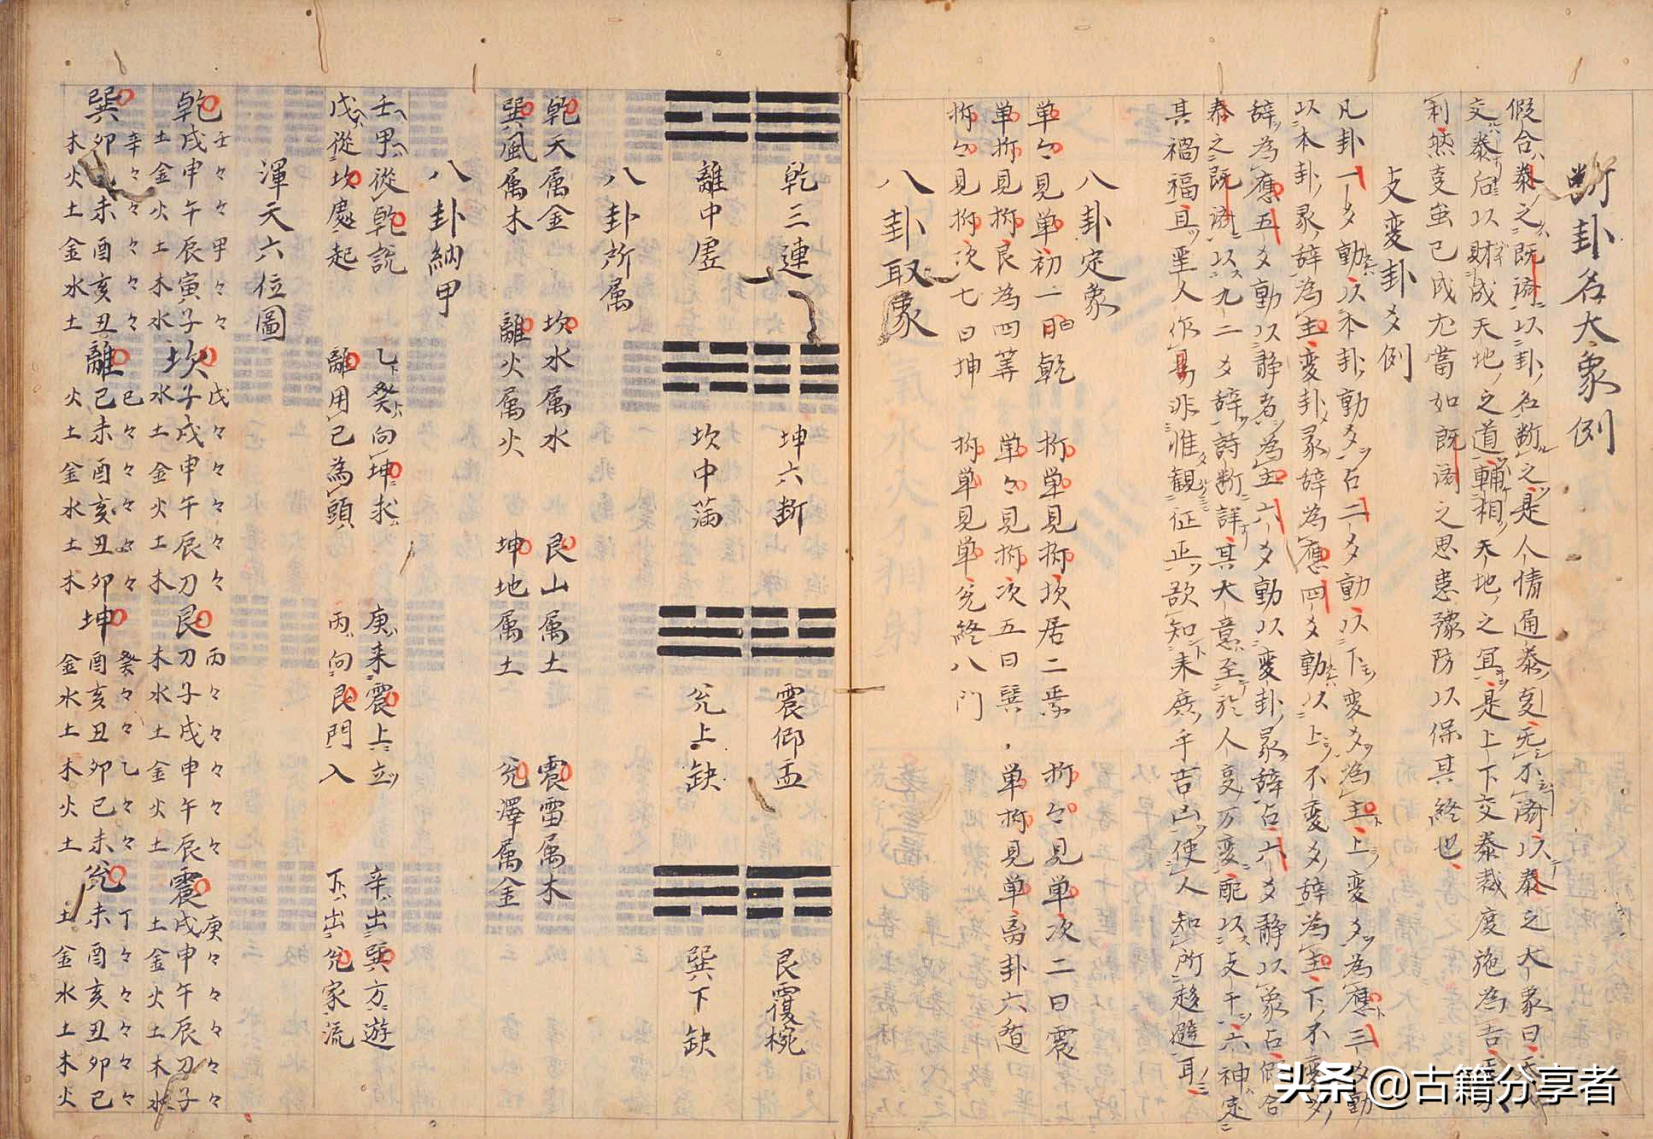 断卦名大象例
假令泰之既済以卦名断之是人情通泰支无不済以泰之大象曰天
交泰后以財成天地之道輔相天地之宜是上下交泰裁度施為吉
利然支虽已成尤當如既済之思患豫防以保其終也
支変卦爻例
凡卦一爻動以本卦動爻占二爻動以下変爻為主上変爻為應三爻動
以本卦彖辞為主変卦彖辞為應四爻動以上不変爻辞為主下不変爻
辞為應五爻動以静者為主六爻動以変卦彖辞占六爻静以象占假令
泰之既済以九二爻辞詩断詳其大意至於人支万変配以支干六神定
其禍福且聖人作易非惟観征正欲知来庶乎吉凶使人知所趍避耳
八卦定象
単々見単初一日乾 拆単見拆坎居二 拆々見単次二日震
単拆見拆艮為四等 単々見拆次五日巽 単拆見単离卦六
拆々見拆次七日坤 拆単見単兊終八门
八卦取象
乾三連 坤六断 震仰盂 艮覆椀
離中虚 坎中満 兊上缺 巽下缺
八卦所属
乾天属金 坎水属水 艮山属土 震雷属木
巽風属木 離火属火 坤地属土 兊澤属金
八卦納甲
壬甲從乾説 乙癸向坤求 庚来震上立 辛出巽方遊
戊從坎處起 離用己為頭 丙向艮門入 丁出兊家流
渾天六位圖
壬々々甲々々 戊々々々々々 丙々々々々々 庚々々々々々
乾戌申午辰寅子 坎子戌申午辰 艮 子戌申午辰 震戌申午辰 子
土金火土木水 水土金火土木 木水土金火土 土金火土木水
辛々々々々々 己々々々々々 癸々々乙々々 丁々々々々々
巽卯巳未酉亥丑 離己未酉亥丑卯 坤酉亥丑卯巳未 兊未酉亥丑卯巳
木火土金水土 火土金水土木 金水土木火土 土金水土木火
头条 @古籍分享者